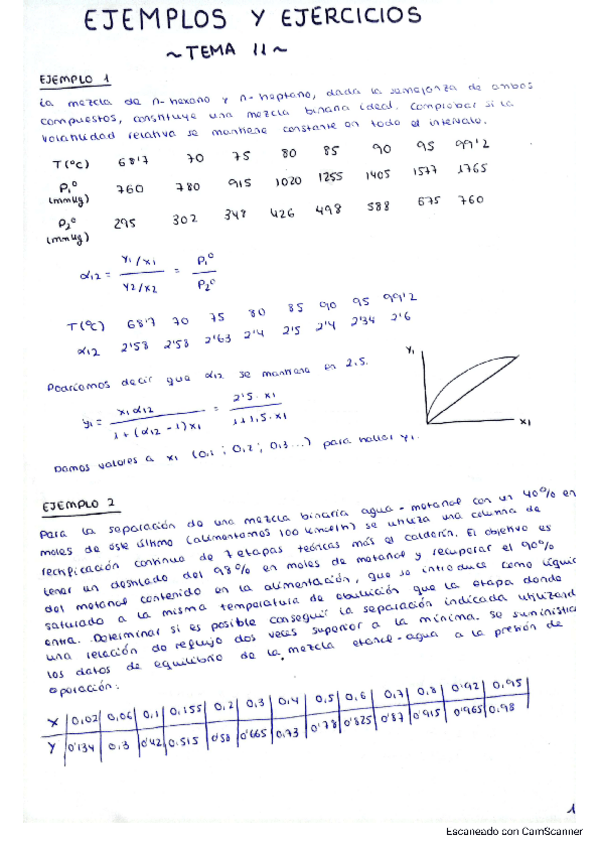 EJEMPLOS Y EJERCICIOS
~TEMA 11~
EJEMPLO 1
La mezcla de n-hexano y n-heptano, dada la semejanza de ambos
compuestos, constituye una mezcla binaria ideal. Comprobar si la
volatilidad relativa se mantiene constante en todo el intervalo.
T(ºC) 68'7 70 75 80 85 90 95 99'2
P₁⁰ (mmHg) 760 780 915 1020 1255 1405 1577 1765
P₂⁰ (mmHg) 295 302 348 426 498 588 675 760
α12 = (y1/x1)/(y2/x2) = P₁⁰/P₂⁰
T(ºC) 68'7 70 75 80 85 90 95 99'2
α12 2'58 2'58 2'63 2'4 2'5 2'4 2'34 2'6
Podríamos decir que α12 se mantiene en 2.5.
y1 = x1 α12 / (1 + (α12 - 1) x1) = 2'5 · x1 / (1 + 1,5 · x1)
Y1
X1
Damos valores a x1 (0,1 ; 0,2 ; 0,3 ...) para hallar y1.
EJEMPLO 2
Para la separación de una mezcla binaria agua - metanol con un 40% en
moles de éste último (alimentamos 100 kmol/h) se utiliza una columna de
rectificación continua de 7 etapas teóricas más el calderín. El objetivo es
tener un destilado del 98% en moles de metanol y recuperar el 90%
del metanol contenido en la alimentación, que se introduce como líquido
saturado a la misma temperatura de ebullición que la etapa donde
entra. Determinar si es posible conseguir la separación indicada utilizando
una relación de reflujo dos veces superior a la mínima. Se suministran
los datos de equilibrio de la mezcla etanol-agua a la presión de
operación:
X | 0,02 | 0,06 | 0,1 | 0,155 | 0,2 | 0,3 | 0,4 | 0,5 | 0,6 | 0,7 | 0,8 | 0'92 | 0,95
Y | 0'134 | 0,3 | 0'42 | 0.515 | 0'58 | 0'665 | 0,73 | 0'78 | 0'825 | 0'87 | 0'915 | 0'965 | 0.98
1
Escaneado con CamScanner